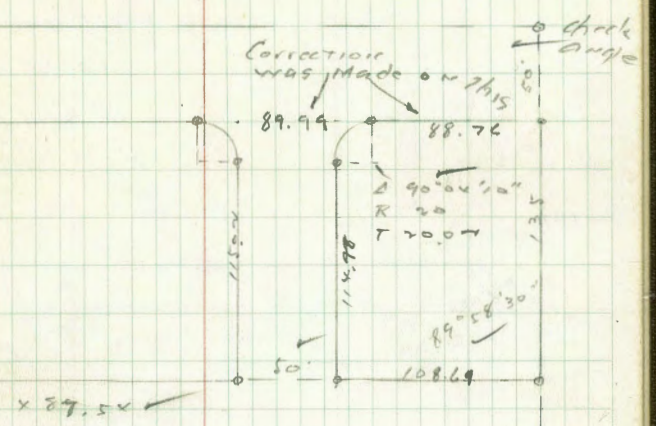 check
Angle
Correction
was Made on This
89.99
88.76
R 20
T 20.02
115.02
114.98
135
89° 58' 30"
50'
108.69